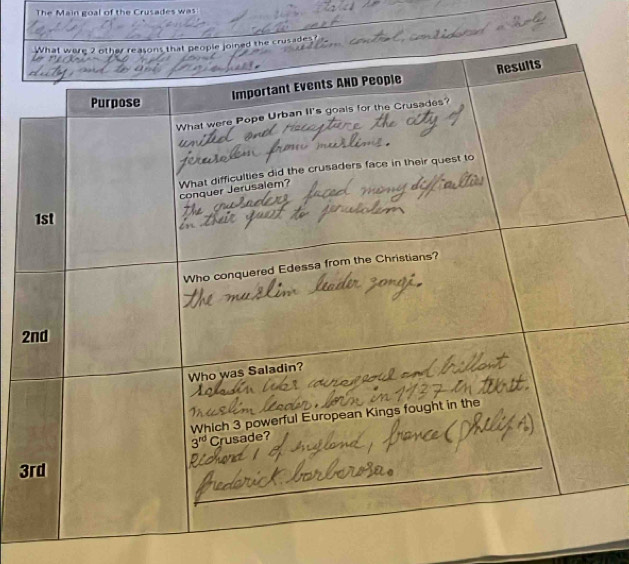 The Main goal of the Crusades was
What were 2 other reasons that people joined the crusades?
muslim control, considered a holy
duty, and to get forgiveness.
Purpose Important Events AND People Results
What were Pope Urban II's goals for the Crusades?
united and recapture the city of
jerusalem from muslims.
1st
What difficulties did the crusaders face in their quest to
conquer Jerusalem?
the crusaders faced many difficulties
in their quest to jerusalem
2nd
Who conquered Edessa from the Christians?
the muslim leader zongi.
3rd
Who was Saladin?
Saladin was courageous and brillant
muslim leader. born in 1137 in tikrit.
Which 3 powerful European Kings fought in the
3rd Crusade?
Richard 1 of england, france (Philip A)
frederick barbarosa.